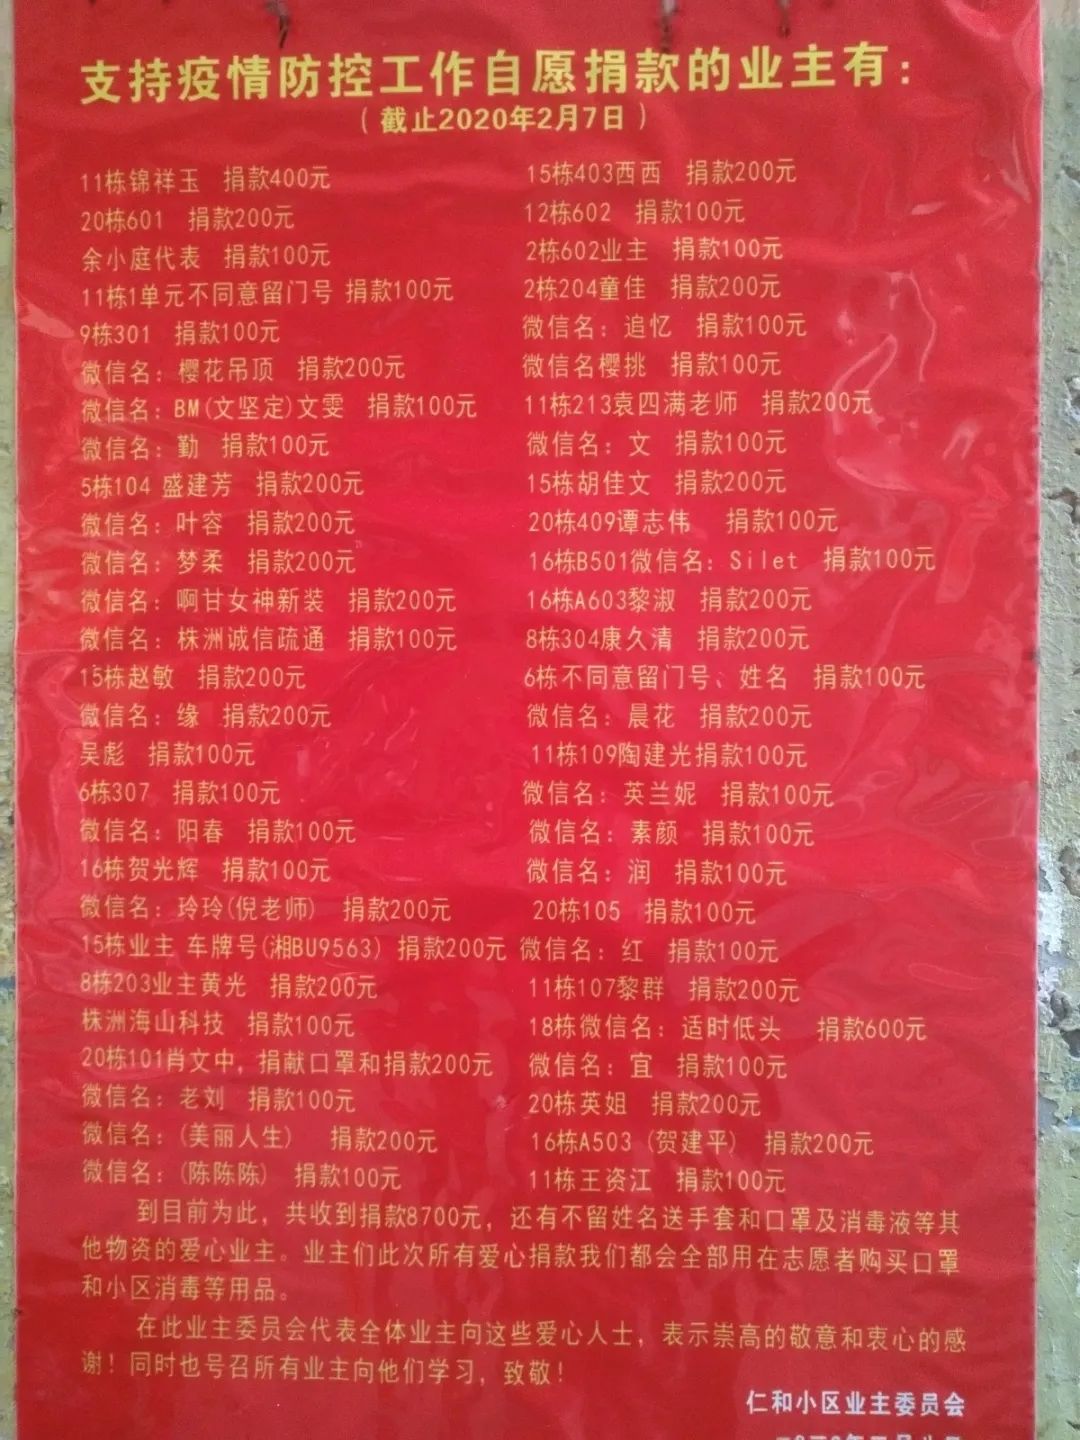 支持疫情防控工作自愿捐款的业主有：
（截止2020年2月7日）
11栋锦祥玉 捐款400元
20栋601 捐款200元
余小庭代表 捐款100元
11栋1单元不同意留门号 捐款100元
9栋301 捐款100元
微信名：樱花吊顶 捐款200元
微信名：BM(文坚定)文雯 捐款100元
微信名：勤 捐款100元
5栋104 盛建芳 捐款200元
微信名：叶容 捐款200元
微信名：梦柔 捐款200元
微信名：啊甘女神新装 捐款200元
微信名：株洲诚信疏通 捐款100元
15栋赵敏 捐款200元
微信名：缘 捐款200元
吴彪 捐款100元
6栋307 捐款100元
微信名：阳春 捐款100元
16栋贺光辉 捐款100元
微信名：玲玲(倪老师) 捐款200元
15栋业主 车牌号(湘BU9563) 捐款200元
8栋203业主黄光 捐款200元
株洲海山科技 捐款100元
20栋101肖文中，捐献口罩和捐款200元
微信名：老刘 捐款100元
微信名：(美丽人生) 捐款200元
微信名：(陈陈陈) 捐款100元
15栋403西西 捐款200元
12栋602 捐款100元
2栋602业主 捐款100元
2栋204童佳 捐款200元
微信名：追忆 捐款100元
微信名樱挑 捐款100元
11栋213袁四满老师 捐款200元
微信名：文 捐款100元
15栋胡佳文 捐款200元
20栋409谭志伟 捐款100元
16栋B501微信名：Silet 捐款100元
16栋A603黎淑 捐款200元
8栋304康久清 捐款200元
6栋不同意留门号、姓名 捐款100元
微信名：晨花 捐款200元
11栋109陶建光捐款100元
微信名：英兰妮 捐款100元
微信名：素颜 捐款100元
微信名：润 捐款100元
20栋105 捐款100元
微信名：红 捐款100元
11栋107黎群 捐款200元
18栋微信名：适时低头 捐款600元
微信名：宜 捐款100元
20栋英姐 捐款200元
16栋A503 (贺建平) 捐款200元
11栋王资江 捐款100元
到目前为此，共收到捐款8700元，还有不留姓名送手套和口罩及消毒液等其
他物资的爱心业主。业主们此次所有爱心捐款我们都会全部用在志愿者购买口罩
和小区消毒等用品。
在此业主委员会代表全体业主向这些爱心人士，表示崇高的敬意和衷心的感
谢！同时也号召所有业主向他们学习，致敬！
仁和小区业主委员会